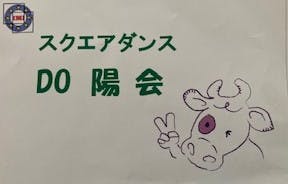 スクエアダンス
DO 陽会